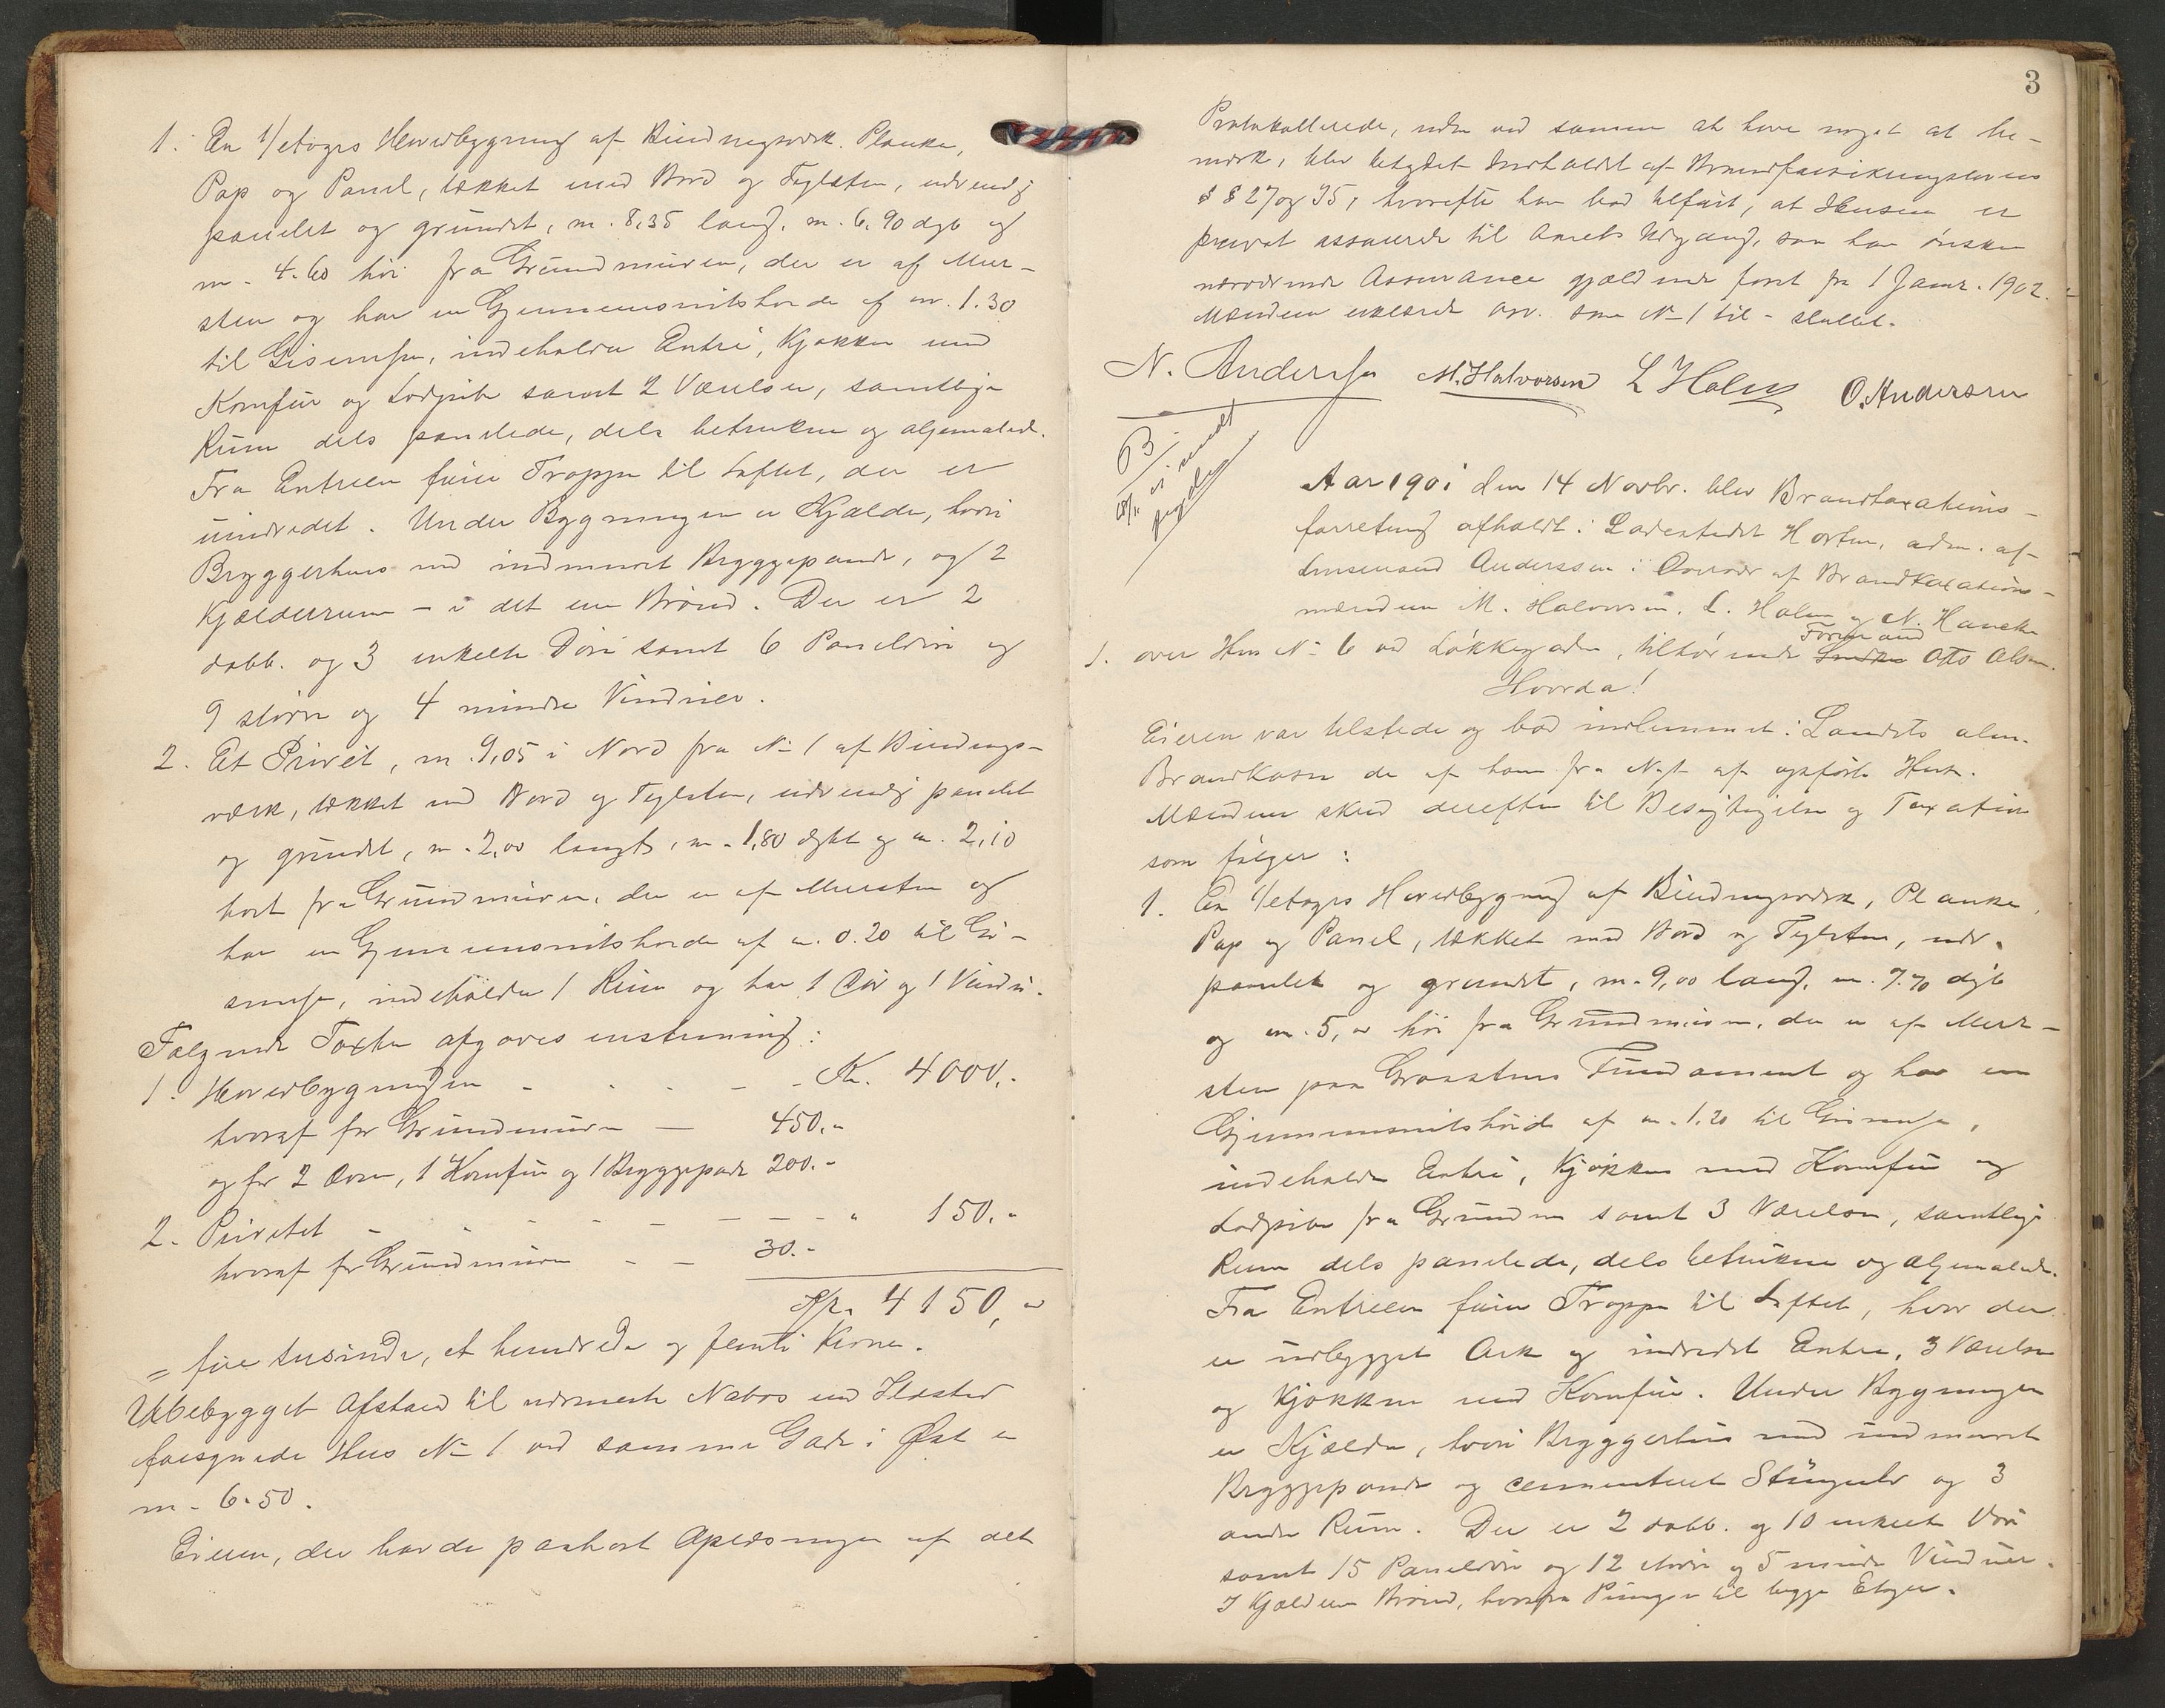 1. En 1/etages Hovedbygning af Bindingsværk, Planke,
Pap og Panel, tækket med Bord og Teglsten, udvendig
panelet og grundet, m. 8,35 lang, m. 6,90 dyb og
m. 4.60 høi fra Grundmuren, der er af Mur-
sten og har en Gjennemsnitshøide af m. 1.30
til Gisimsen, indeholder Entré, Kjøkken med
Komfur og Lodpibe samt 2 Værelser, samtlige
Rum dels panelede, dels betrukne og oljemalede.
Fra Entreen fører Trappe til Loftet, der er
uindredet. Under Bygningen er Kjælder, hvori
Bryggerhus med indmuret Bryggepande, og 2
Kjælderrum – i det ene Brønd. Der er 2
dobb. og 3 enkelte Døre samt 6 Paneldøre og
9 større og 4 mindre Vinduer.
2. Et Privet, m. 9,05 i Nord fra No 1 af Bindings-
værk, tækket med Bord og Teglsten, udvendig panelet
og grundet, m. 2,00 langt, m. 1,80 dybt og m. 2,10
høit fra Grundmuren, der er af Mursten og
har en Gjennemsnitshøide af m. 0.20 til Gi-
simsen, indeholder 1 Rum og har 1 Dør og 1 Vindu.
Følgende Taxter afgaves enstemmig:
1. Hovedbygningen - - - - - Kr. 4000,-
hvoraf for Grundmuren — 450.-
og for 2 Ovne, 1 Komfur og 1 Bryggepande 200.-
2. Privetet - - - - - - - - " 150.-
hvoraf for Grundmuren - - 30.-
Kr. 4150,00
= fire tusinde, et hundrede og femti Kroner.
Ubebygget Afstand til nærmeste Nabos med Ildsted
forsynede Hus No 1 ved samme Gade i Øst er
m. 6.50.
Eieren, der havde paahørt Oplæsningen af det
3
Protokollerede, uden ved samme at have noget at be-
mærke, blev betydet Indholdet af Brandforsikringslovens
§ § 27 og 35, hvorefter han bad tilført, at Husene er
privat assurerede til Aarets Udgang, saa han ønsker
nærværende Assurance gjældende først fra 1 Januar 1902.
Mændene erklærede Ass. som No 1 til-stillet.
N. Andersen M. Halvorsen L Holm O. Andersen
B
Aar 1901 den 14 Novbr. blev Brandtaxations-
forretning afholdt i Ladestedet Horten, adm. af
Lensmand Anderssen i Overvær af Brandtaxations-
mændene M. Halvorsen, L. Holm og N. Hanche
Formand
1. over Hus No 6 ved Løkkegaden, tilhørende Smeden Otto Olsen.
Hvorda!
Eieren var tilstede og bad indlemmet i Landets alm.
Brandkasse de af ham fra Nyt af opførte Huse.
Mændene skred derefter til Besigtigelse og Taxation
som følger:
1. En 1/etages Hovedbygning af Bindingsværk, Planke,
Pap og Panel, tækket med Bord og Teglsten, udv.
panelet og grundet, m. 9,00 lang, m. 7.70 dyb
og m. 5,00 høi fra Grundmuren, der er af Mur-
sten paa Graastens Fundament og har en
Gjennemsnitshøide af m. 1.20 til Gisimsen,
indeholder Entré, Kjøkken med Komfur og
Lodpibe fra Grunden samt 3 Værelser, samtlige
Rum dels panelede, dels betrukne og oljemalede.
Fra Entreen fører Trappe til Loftet, hvor der
er udbygget Ark og indredet Entre, 3 Værelser
og Kjøkken med Komfur. Under Bygningen
er Kjælder, hvori Bryggerhus med indmuret
Bryggepande og cementeret Stengulv og 3
andre Rum. Der er 2 dobb. og 10 enkelte Døre
samt 15 Paneldøre og 12 større og 5 mindre Vinduer.
I Kjælderen Brønd, hvorfra Pumpe til begge Etager.